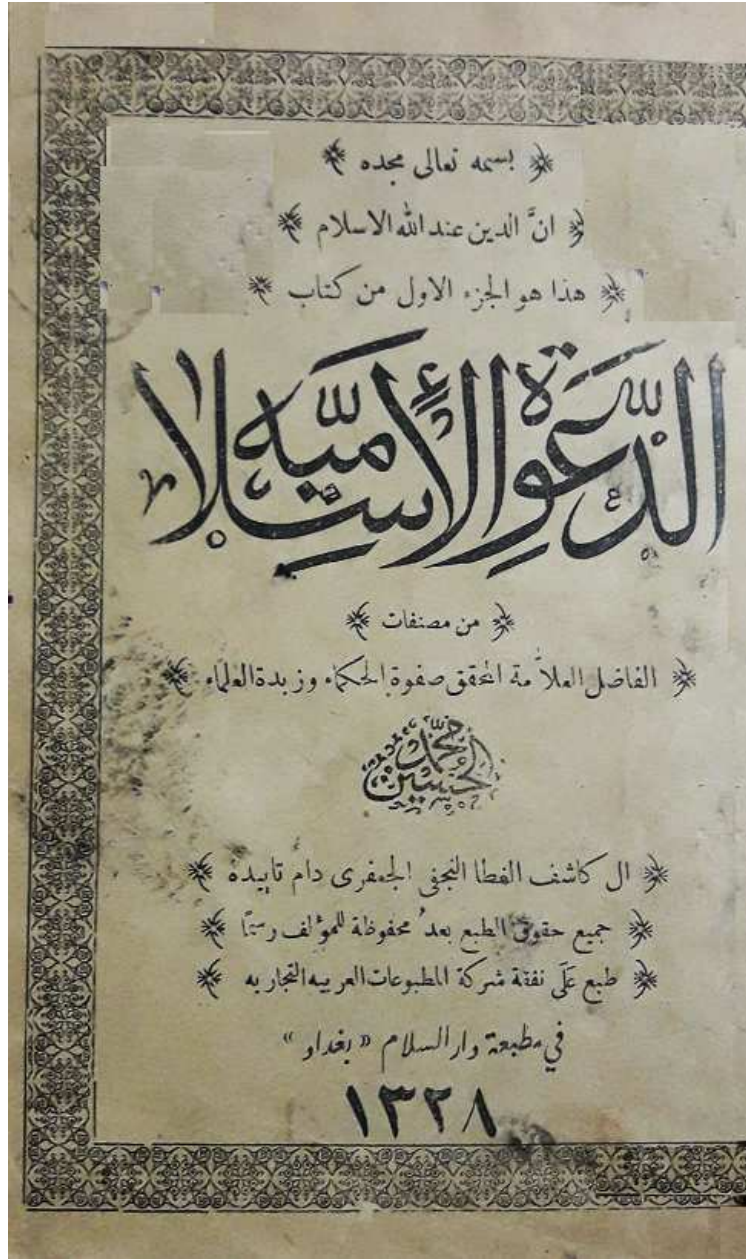 بسمه تعالى مجده
انَّ الدين عند الله الاسلام
هذا هو الجزء الاول من كتاب
الدَّعوة الإسلاميَّه
من مصنفات
الفاضل العلاَّمة المحقق صفوة الحكماء وزبدة العلماء
محمد الحسين
ال كاشف الغطا النجفي الجعفرى دام تاييده
جميع حقوق الطبع بعدُ محفوظة للمؤلف رسمًا
طبع عَلَى نفقة شركة المطبوعات العربيه التجاريه
في مطبعة دار السلام «بغداد»
١٣٢٨